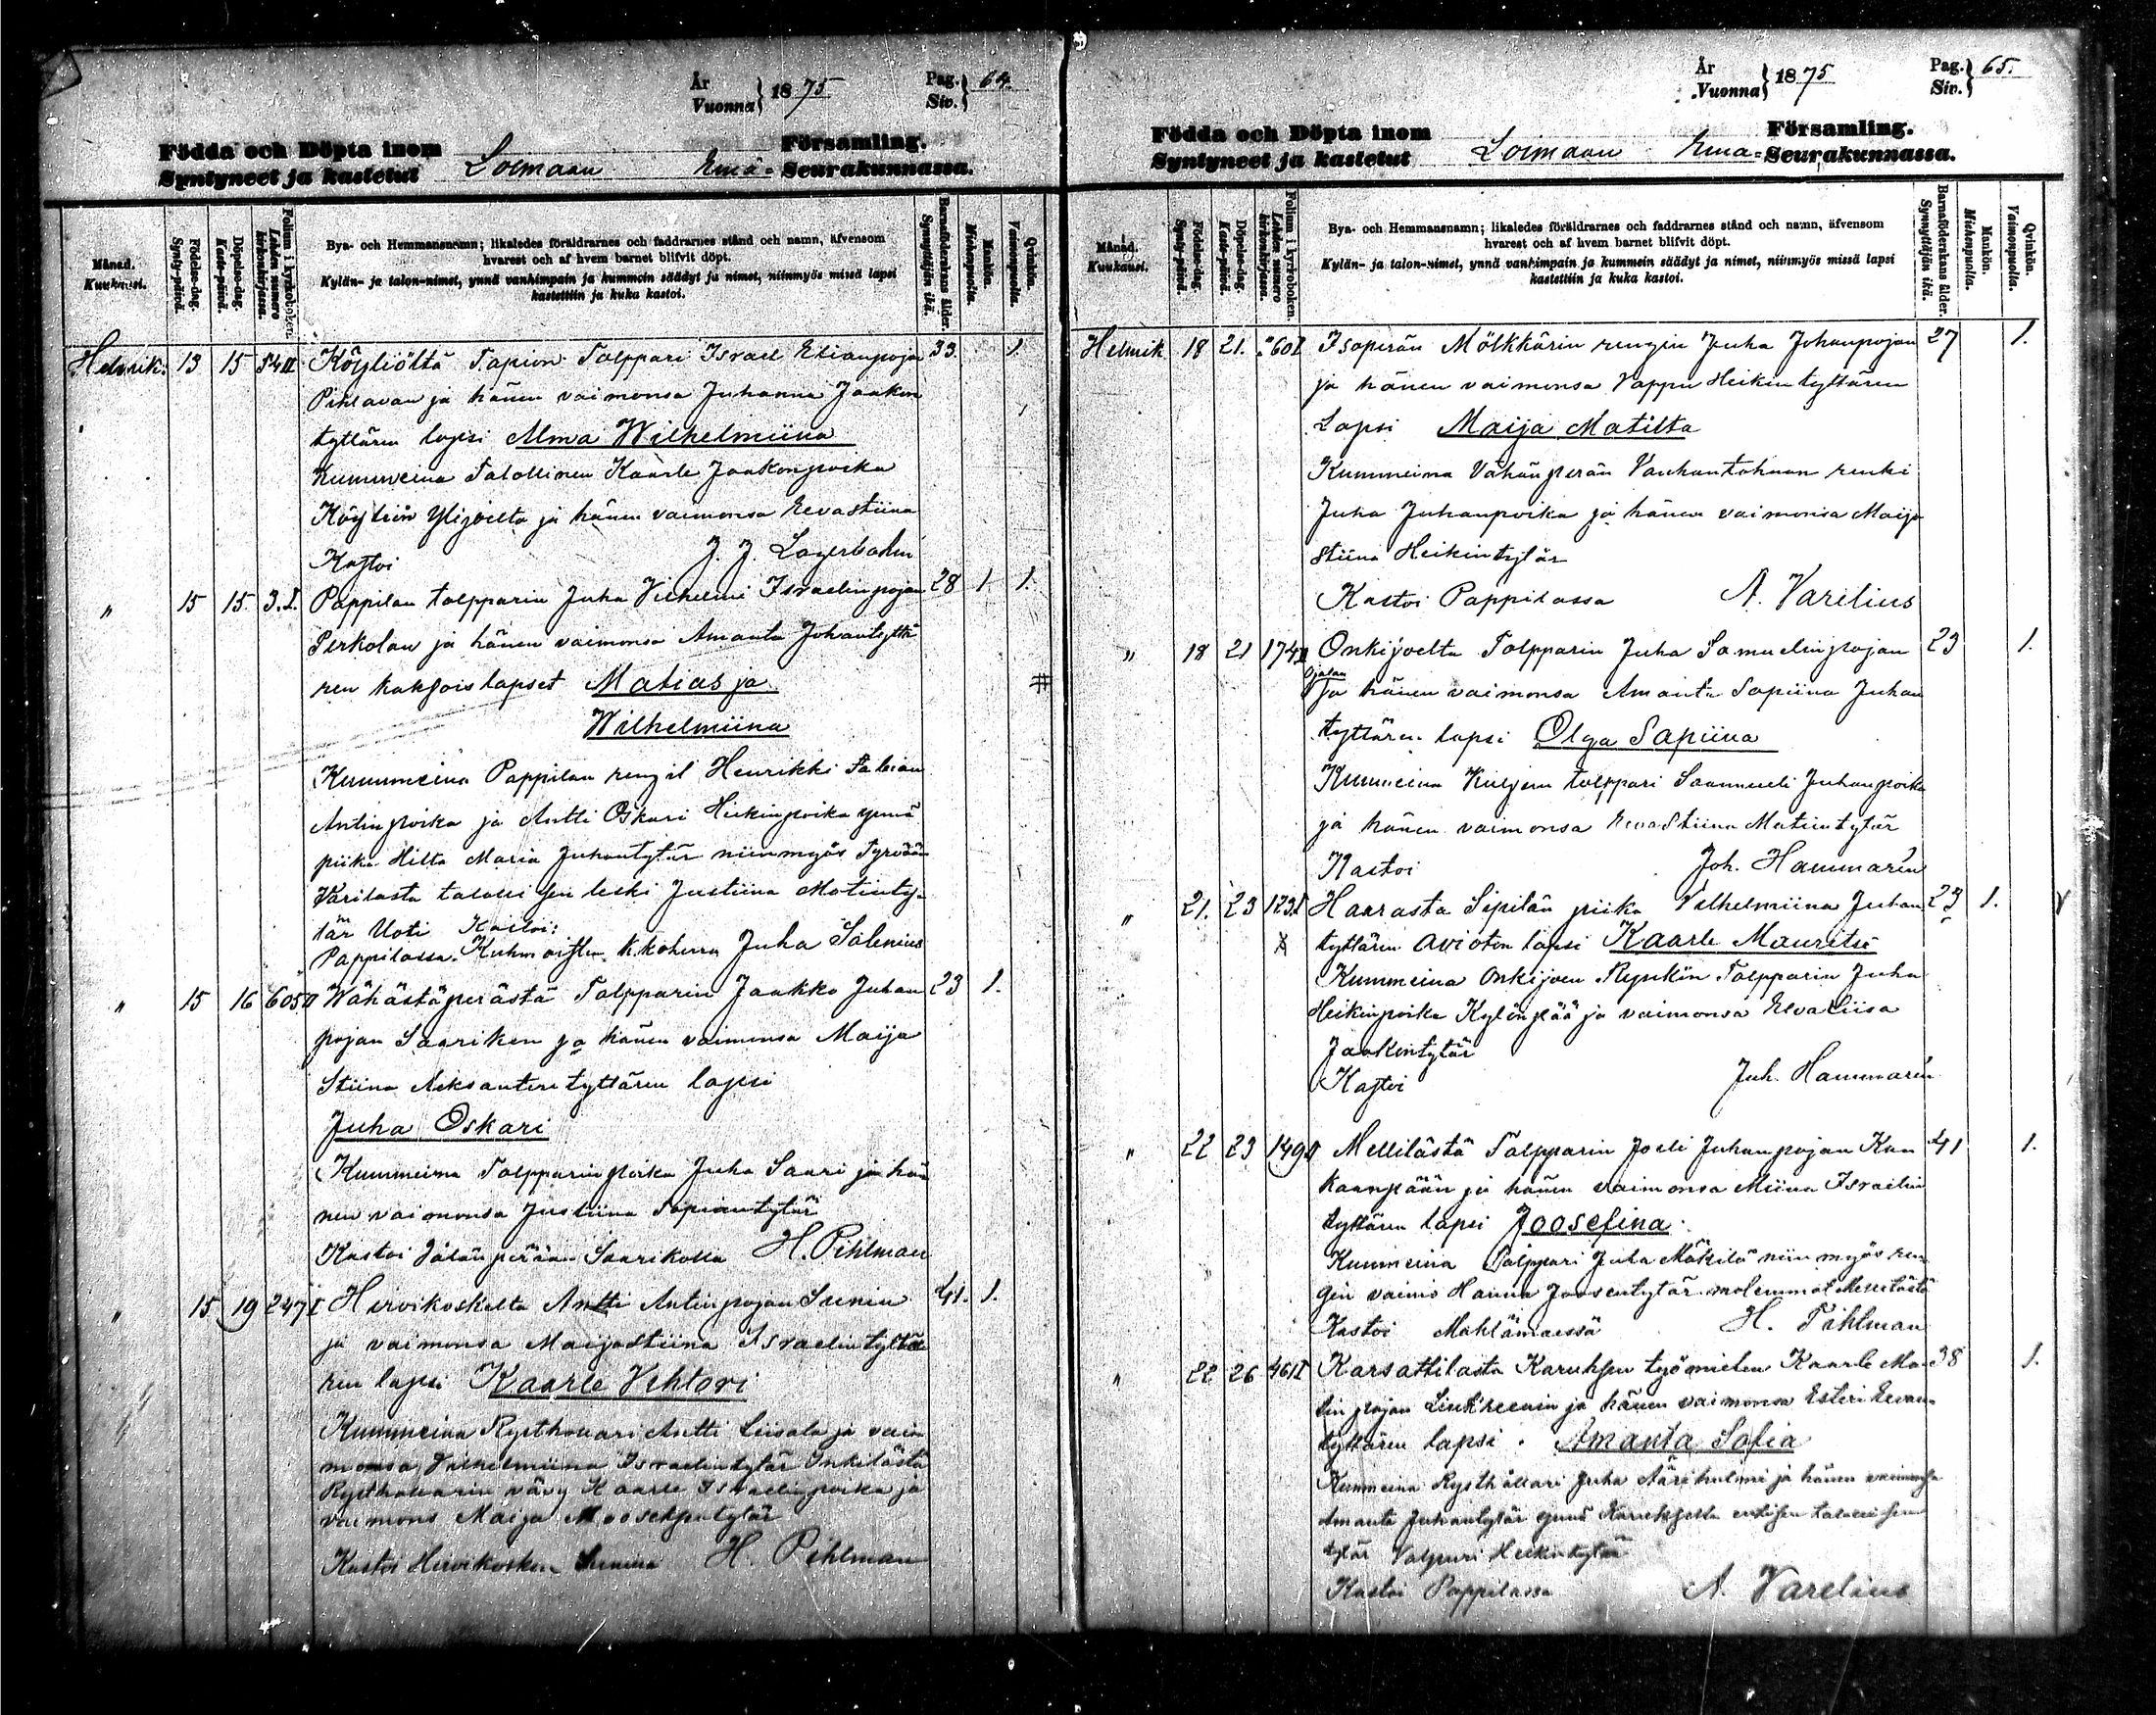 År
Vuonna } 1875
Pag.
Siv. } 64.
Födda och Döpta inom
Syntyneet ja kastetut Loimaan Emä- Församling.
Seurakunnassa.
Månad.
Kuukausi.
Födelse-dag.
Synty-päivä.
Döpelse-dag.
Kaste-päivä.
Folium i kyrkoboken.
Lehden numero kirkonkirjassa.
Bya- och Hemmansnamn; likaledes föräldrarnes och faddrarnes stånd och namn, äfvensom
hvarest och af hvem barnet blifvit döpt.
Kylän- ja talon-nimet, ynnä vanhimpain ja kummein säädyt ja nimet, niinmyös missä lapsi
kastettiin ja kuka kastoi.
Barnaföderskans ålder.
Synnyttäjän ikä.
Mankön.
Miehenpuolia.
Qvinkön.
Vaimonpuolia.
Helmik: 13 15 54 II Köyliöltä Tapion Tolppari Israel Elianpoja 33. 1.
Pihlavan ja hänen vaimonsa Juhanna Jaakon
tyttären lapsi Alma Wilhelmiina
Kummeina Talollinen Kaarle Jaakonpoika
Köyliön Ylijoelta ja hänen vaimonsa Eevastiina
Kastoi J. J. Lagerbohm
" 15 15. 3. I. Pappilan tolpparin Juha Vilhelmi Israelinpojan 28 1 1.
Perkolan ja hänen vaimonsa Amanta Johantyttä
ren kaksoislapset Matias ja
Wilhelmiina
Kummeina Pappilan rengit Henrikki Fabian
Antinpoika ja Antti Oskari Heikinpoika ynnä
piika Hilta Maria Juhantytär niinmyös Tyrvään
Karilasta talollisen leski Justiina Matinty-
tär Uoti Kastoi:
Pappilassa. Kuhmoisten k.koherra Juha Salenius
" 15 16 605 II Wähästäperästä Tolpparin Jaakko Juhan 23 1.
pojan Saariken ja hänen vaimonsa Maija
Stiina Aeksanterityttären lapsi
Juha Oskari
Kummeina Tolpparinpoika Juha Saari ja hä
nen vaimonsa Justiina Sapiantytär
Kastoi Saarikolla H. Pihlman
" 15 19 247 I Hirvikoskelta Antti Antinpojan Sunin 41. 1.
ja vaimonsa Maijastiina Israelintyttä
ren lapsi Kaarle Vihtori
Kummeina Rysthollari Antti Liisala ja vai
monsa Vilhelmiina Israelintytär Onkilästä
Rysthollarin vävy Kaarle Israelinpoika ja
vaimons Maija
Kastoi Hirvikosken Sunina H. Pihlman
År
Vuonna } 1875
Pag.
Siv. } 65.
Födda och Döpta inom
Syntyneet ja kastetut Loimaan Emä- Församling.
Seurakunnassa.
Månad.
Kuukausi.
Födelse-dag.
Synty-päivä.
Döpelse-dag.
Kaste-päivä.
Folium i kyrkoboken.
Lehden numero kirkonkirjassa.
Bya- och Hemmansnamn; likaledes föräldrarnes och faddrarnes stånd och namn, äfvensom
hvarest och af hvem barnet blifvit döpt.
Kylän- ja talon-nimet, ynnä vanhimpain ja kummein säädyt ja nimet, niinmyös missä lapsi
kastettiin ja kuka kastoi.
Barnaföderskans ålder.
Synnyttäjän ikä.
Mankön.
Miehenpuolia.
Qvinkön.
Vaimonpuolia.
Helmik 18 21. 60 I Isoperän Mölkkärin rengin Juha Johanpojan 27 1.
ja hänen vaimonsa Vappu Heikintyttären
Lapsi Maija Matilta
Kummeina Vähänperän Vanhantahnan renki
Juha Juhanpoika ja hänen vaimonsa Maija
Stiina Heikintytär
Kastoi Pappilassa A. Varelius
" 18 21 174 II Onkijoelta Tolpparin Juha Samuelinpojan 23 1.
Ojalan
ja hänen vaimonsa Amanta Sapiina Juhan
tyttären lapsi Olga Sapiina
Kummeina tolppari Saamueli Juhanpoika
ja hänen vaimonsa Eevastiina Matintytär
Kastoi Joh. Hammarén
" 21. 23 123 I Haarasta Sipilän piika Vilhelmiina Juhan 23 1.
tyttären avioton lapsi Kaarle Mauritsi
Kummeina Onkijoen Rynkön Tolpparin Juha
Heikinpoika Kylänpää ja vaimonsa Eevaliisa
Jaakontytär
Kastoi Juh. Hammarén
" 22 23 149 II Mellilästä Tolpparin Joeli Juhanpojan Kan 41 1.
kaanpään ja hänen vaimonsa Miina Israelin
tyttären lapsi Joosefina.
Kummeina Tolppari Juha Mäkilä niin myös ren-
gin vaimo Hanna Joosentytär molemmat Mellilästä
Kastoi H. Pihlman
" 22 26 461 I Karsattilasta Karuksen työmiehen Kaarle Ma- 38 1.
tinpojan ja hänen vaimonsa Esteri Eevan-
tyttären lapsi. Amanta Sofia
Kummeina Rysthollari Juha ja hänen vaimonsa
Amanta Juhantytär ynnä entisen talollisen
tytär Valpuri Heikintytär
Kastoi Pappilassa A. Varelius